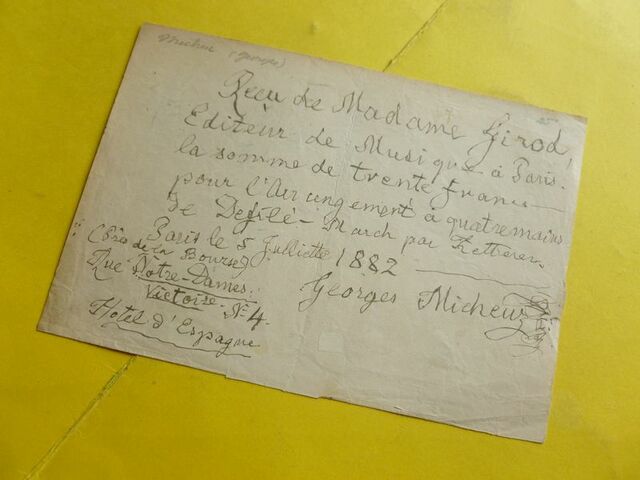 Micheuz (Georges)
25
Reçu de Madame Girod,
Editeur de Musique à Paris.
la somme de trente francs
pour l'Arrangement à quatremains
de Defilé-March par Ketterer.
Paris le 5 Julliette 1882
(Prês de la Bourse)
Rue Notre-Dames.
Victoire. No 4.
Hotel d'Espagne
Georges Micheuz